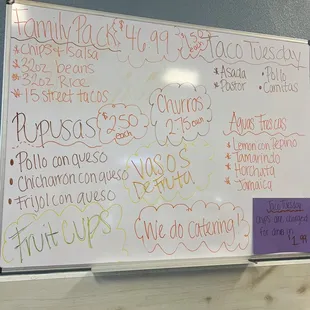 Family Pack $46.99
* Chips & Salsa
* 32oz beans
* 32oz Rice
* 15 street tacos
1.50 each
Taco Tuesday
• Asada
• Pollo
• Pastor
• Carnitas
Pupusas $2.50 each
• Pollo con queso
• Chicharron con queso
• Frijol con queso
Churros
2.75 each
Aguas Frescas
• Lemon con Pepino
• Tamarindo
• Horchata
• Jamaica
Vasos
De fruta
Fruit Cups
We do catering!
Tuesday
chips are
for dine in
1.99